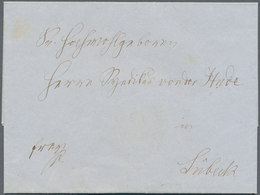 Sr. Hochwohlgeboren
Herrn Syndikus von der Hude
in
franco
Lübeck